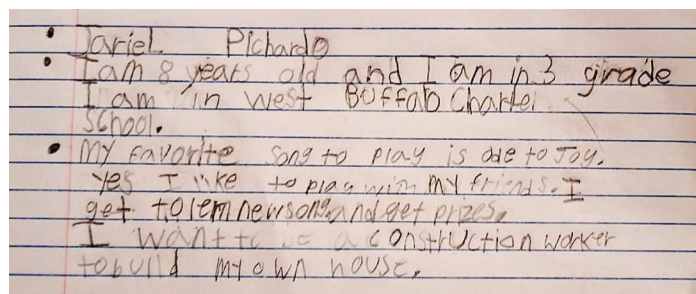 • Jariel Pichardo
• I am 8 years old and I am in 3 grade
I am in west Buffalo Charter
School.
• My favorite song to play is ode to Joy.
yes I like to play with my friends. I
get to lern new song and get prizes.
I want to be a construction worker
to build my own house.